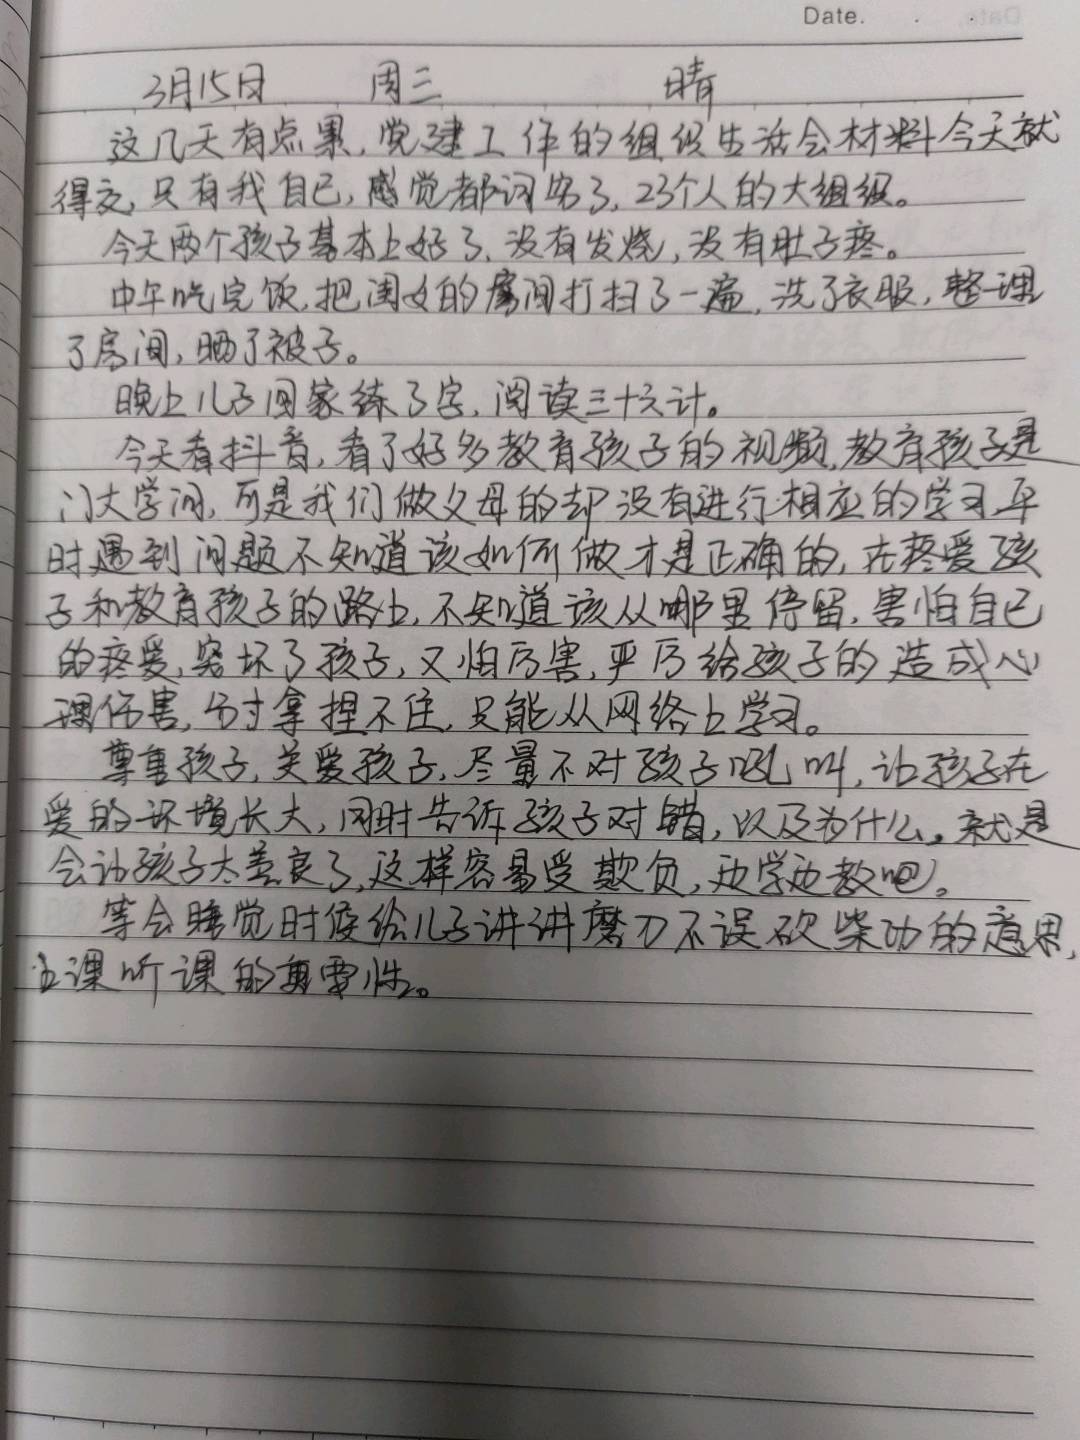 Date.
3月15日 周三 晴
这几天有点累,党建工作的组织生活会材料今天就
得交,只有我自己,感觉都词穷了,23个人的大组织。
今天两个孩子基本上好了,没有发烧,没有肚子疼。
中午吃完饭,把闺女的房间打扫了一遍,洗了衣服,整理
了房间,晒了被子。
晚上儿子回家练了字,阅读三十六计。
今天看抖音,看了好多教育孩子的视频,教育孩子是一
门大学问,可是我们做父母的却没有进行相应的学习平
时遇到问题不知道该如何做才是正确的,在疼爱孩
子和教育孩子的路上,不知道该从哪里停留,害怕自己
的疼爱,坏了孩子,又怕厉害,严厉给孩子的造成心
理伤害,分寸拿捏不住,只能从网络上学习。
尊重孩子,关爱孩子,尽量不对孩子吼叫,让孩子在
爱的环境长大,同时告诉孩子对错,以及为什么。就是
会让孩子太善良了,这样容易受欺负,边学边教吧。
等会睡觉时候给儿子讲讲磨刀不误砍柴功的意思,
上课听课的重要性。